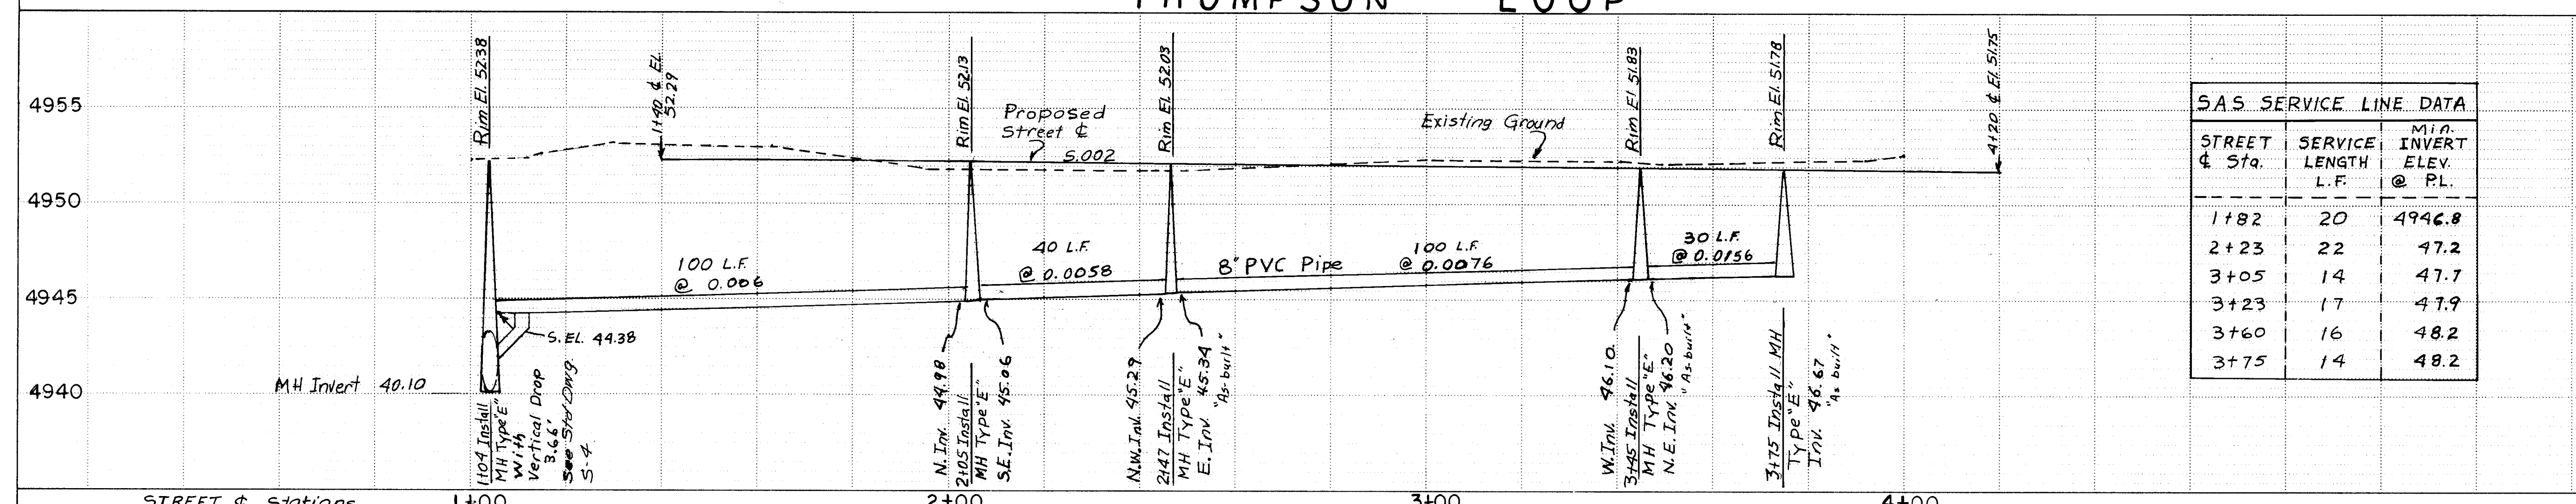 THOMPSON LOOP
Rim El. 52.38
1+40 ℄ El.
52.29
Rim El. 52.13
Proposed
Street ℄
S.002
Rim El. 52.03
Existing Ground
Rim El. 51.83
Rim El. 51.78
4+20 ℄ El. 51.75
4955
4950
4945
4940
100 L.F.
@ 0.006
40 L.F.
@ 0.0058
8" PVC Pipe
100 L.F.
@ 0.0076
30 L.F.
@ 0.0156
S.EL. 44.38
MH Invert 40.10
1+04 Install
MH Type "E"
With
Vertical Drop
3.66'
See Std Dwg.
S-4
N. Inv. 44.98
2+05 Install
MH Type "E"
S.E. Inv. 45.06
N.W. Inv. 45.29
2+47 Install
MH Type "E"
E. Inv. 45.34
"As-built"
W. Inv. 46.10
3+45 Install
MH Type "E"
N.E. Inv. 46.20
"As-built"
3+75 Install MH
Type "E"
Inv. 46.67
"As built"
SAS SERVICE LINE DATA
STREET ℄ Sta. SERVICE LENGTH L.F. Min. INVERT ELEV. @ P.L.
1+82 20 4946.8
2+23 22 47.2
3+05 14 47.7
3+23 17 47.9
3+60 16 48.2
3+75 14 48.2
STREET ℄ Stations 1+00 2+00 3+00 4+00